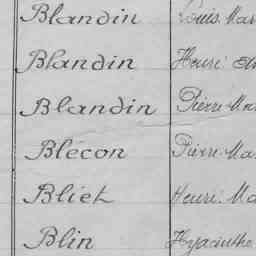 Blandin Louis. Mar
Blandin Henri
Blandin Pierre. Ma
Blécon Pierre. Ma
Bliet Henri. Ma
Blin Hyacinthe